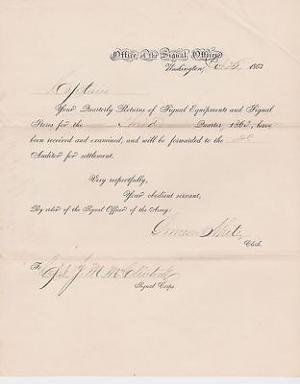 Office of the Signal Officer,
Washington, 1863
Captain
Your Quarterly Returns of Signal Equipments and Signal
Stores for the Quarter 1863, have
been received and examined, and will be forwarded to the 2d
Auditor for settlement.
Very respectfully,
Your obedient servant,
By order of the Signal Officer of the Army:
Clerk.
To
Capt. J. M. McClintock
Signal Corps.